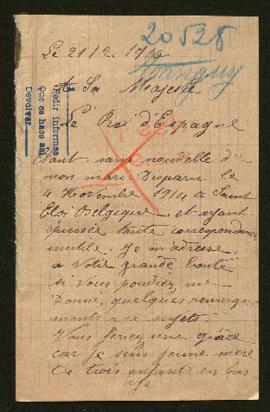 20525
Le 21 2 1916
A Sa Majesté
Le Roi d'Espagne
Pedir informes
Que se hace así
Devolver
Etant sans nouvelle de
mon mari Disparu le
4 Novembre 1914 a Saint
Eloi Belgique et ayant
épuisée toute correspondance
inutile je m'adresse
a votre grande bonté
si vous pourriez me
Donné quelques renseigne
ments a ce sujets.
Vous ferez une grâce
car je suis jeune mère
de trois enfants en bas
age